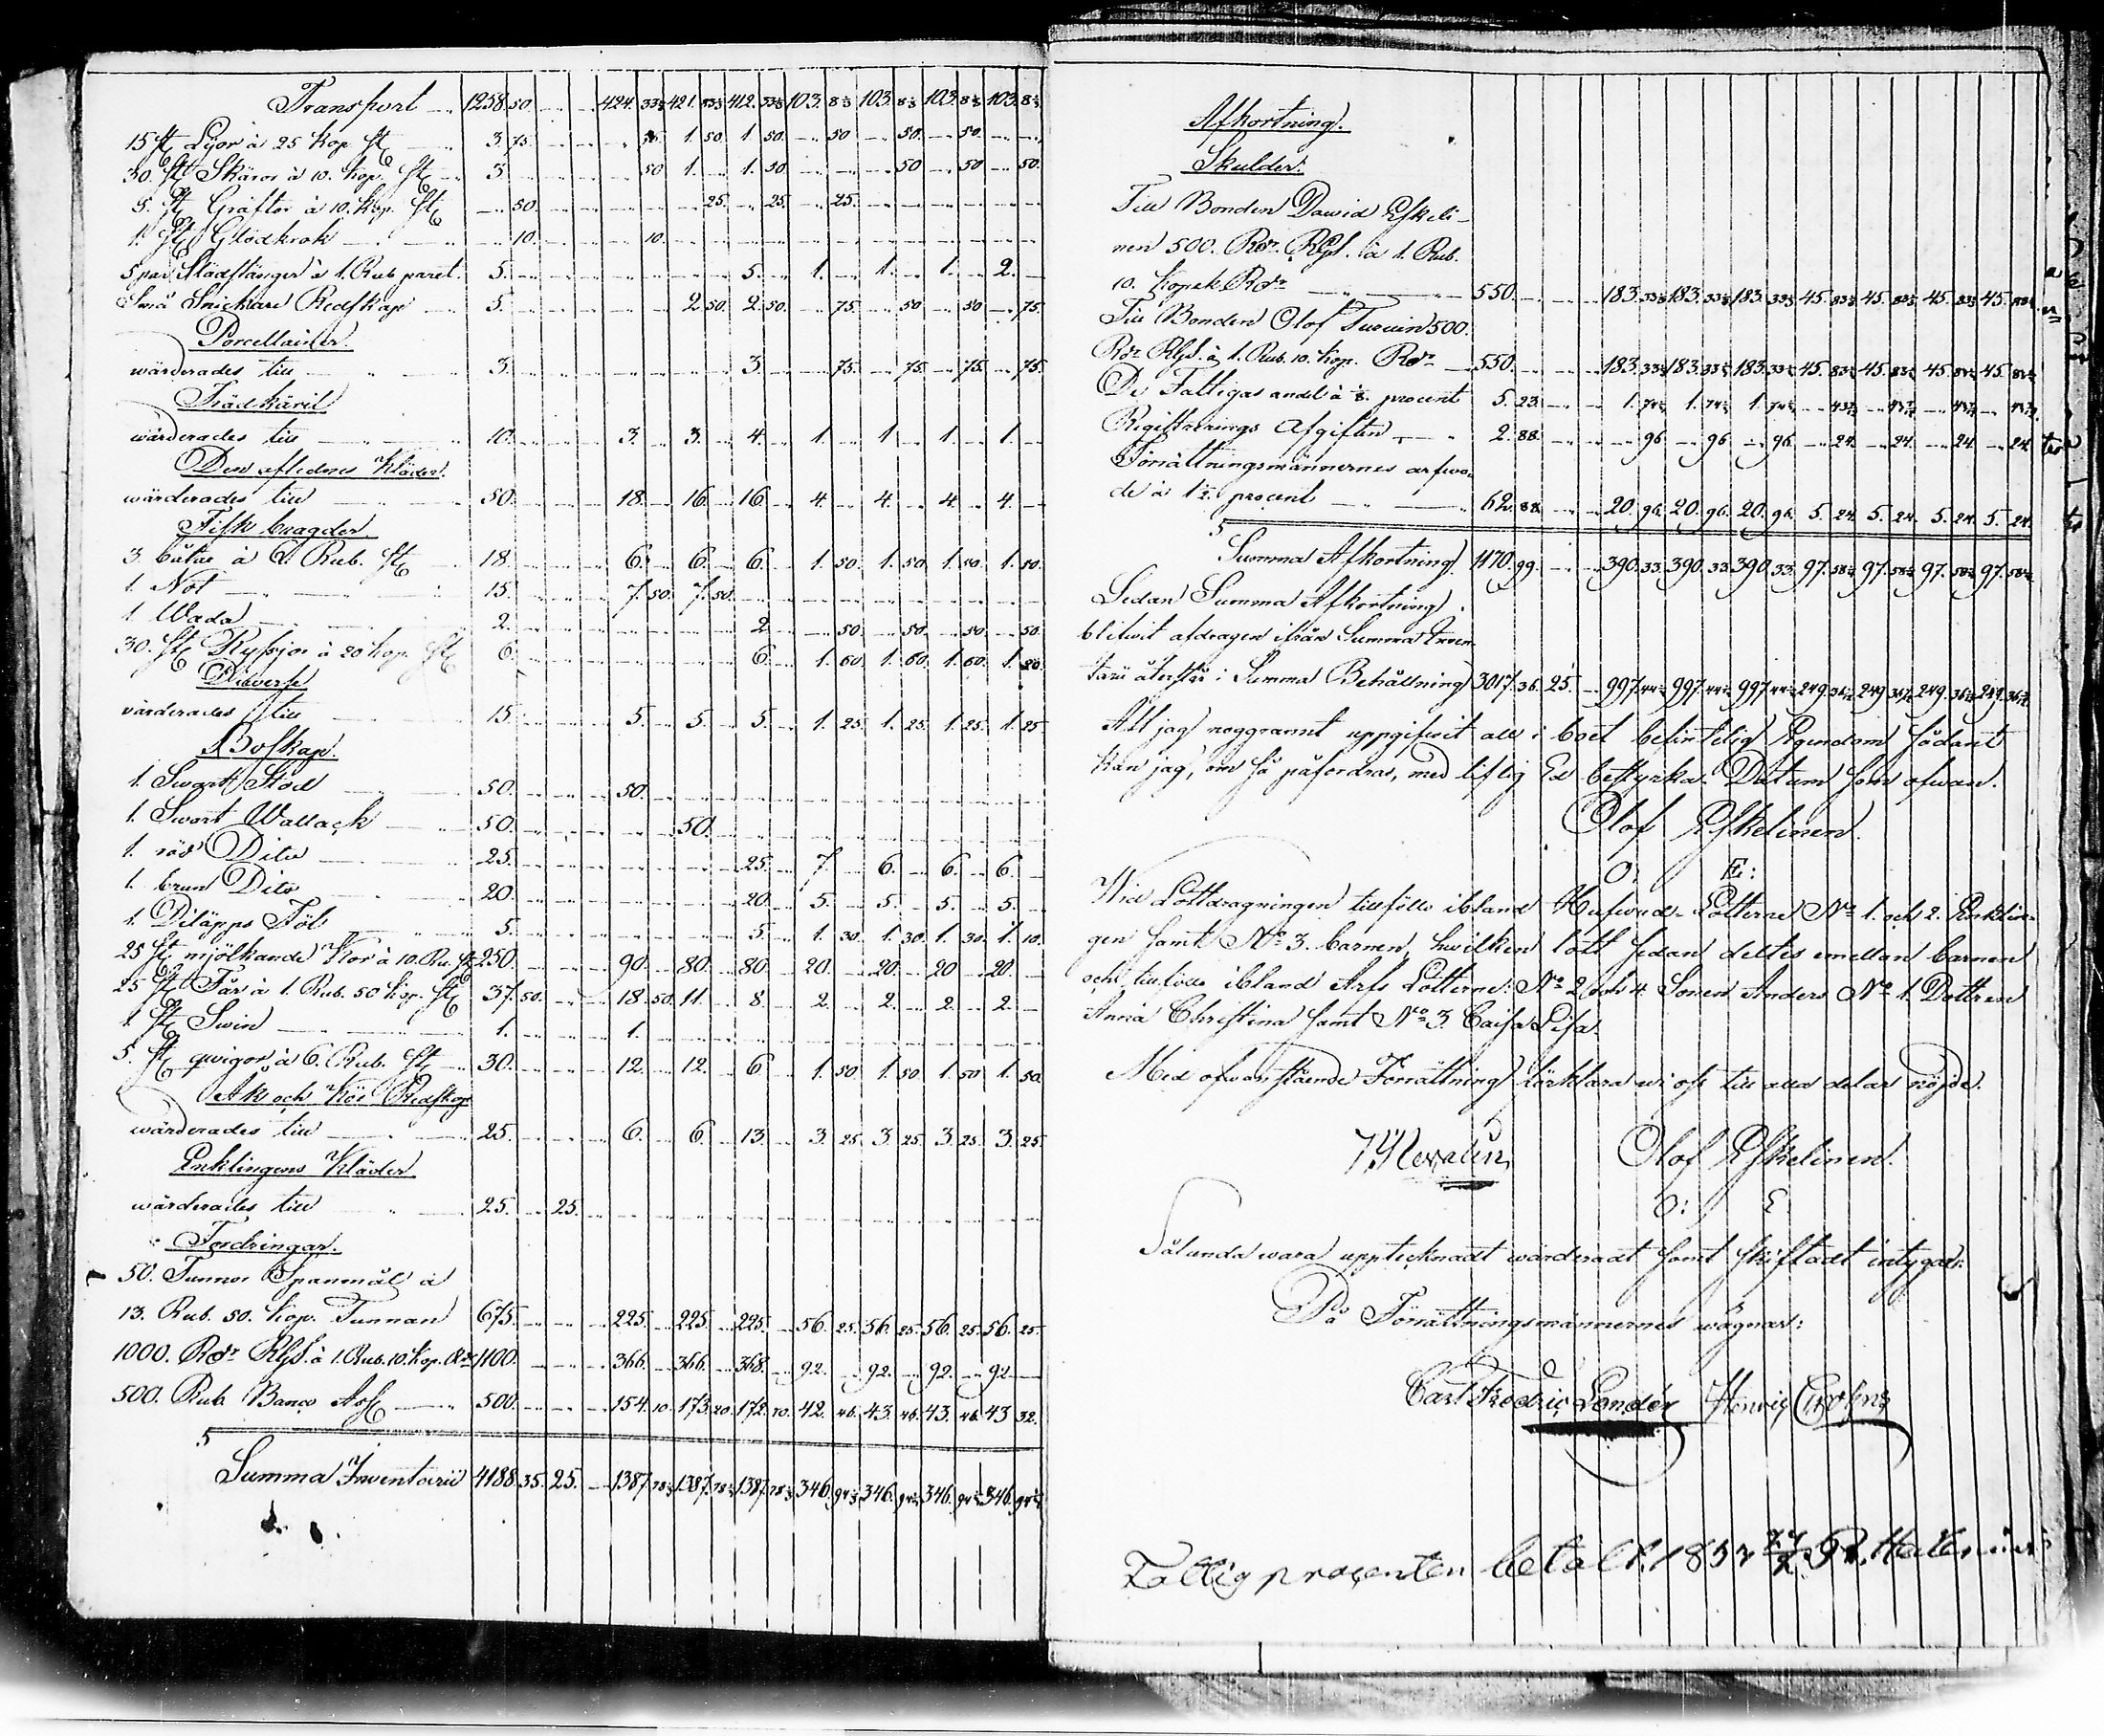 Transport 1258. 50. 424. 33⅓ 421. 83⅓ 412. 33⅓ 103. 8⅓ 103. 8⅓ 103. 8⅓ 103. 8⅓
15 st Lijor à 25 Kop st 3. 75. 1. 50 1. 50. 50 50. 50.
30. st Skäror à 10. Kop. st 3. 50 1. 1. 50. 50 50 50.
5. st Gräftor à 10. Kop. st 50. 25. 25. 25.
1. st Glödkrok 10. 10.
5 par Slädstänger à 1. Rub paret. 5. 5. 1. 1. 1. 2.
Små Snickare Redskap 5. 2 50. 2. 50. 75. 50 50 75.
Porcellainer
wärderades till 3. 3. 75. 75. 75. 75.
Trädkäril
wärderades till 10. 3. 3. 4. 1. 1. 1. 1.
Den aflednes Kläder.
wärderades till 50. 18. 16. 16. 4. 4. 4. 4.
Fisk bragder.
3. båtar à 6. Rub. st 18. 6. 6. 6. 1. 50. 1. 50 1. 50. 1. 50
1. Not 15. 7. 50. 7. 50.
1 Wada 2. 2 50. 50. 50. 50.
30. st Ryssjor à 20 Kop. st 6. 6. 1. 60. 1. 60. 1. 60. 1. 20.
Diverse
wärderades till 15. 5. 5. 5. 1. 25. 1. 25. 1. 25. 1. 25
Boskap.
1. Swart Stod 50. 50.
1. Swart Wallack 50. 50.
1. röd Dito 25. 25. 7. 6. 6. 6.
1. brun Dito 20. 20. 5. 5. 5. 5.
1. Diläpps Föl 5. 5. 1. 30. 1. 30. 1. 30. 1. 10.
25 st mjölkande Kor à 10. Ru. st 250. 90. 80. 80 20. 20. 20 20.
25 st Får à 1. Rub. 50 Kop. st 37. 50. 18. 50. 11. 8. 2. 2. 2. 2.
1 st Swin 1. 1.
5. st qwigor à 6. Rub. st 30. 12. 12. 6 1. 50 1. 50 1. 50 1. 50.
Åk och Kör Redskap
wärderades till 25. 6. 6. 13. 3. 25. 3. 25. 3. 25. 3. 25.
Enklingens Kläder
wärderades till 25. 25.
Fordringar.
50. Tunnor Spanmål à
13. Rub. 50. Kop. Tunnan 675. 225. 225. 225. 56. 25. 56. 25. 56. 25. 56. 25.
1000. Rdr Rgs. à 1. Rub. 10. Kop. 1100. 366. 366. 368. 92. 92. 92. 92
500. Rub Banco Ass 500. 154. 10. 173. 20. 172. 70. 42. 46. 43. 46. 43. 46. 43 32.
Summa Inventarii 4188. 35. 25. 1387. 78⅓ 1387. 78⅓ 1387. 78⅓ 346. 346. 346. 346.
Afkortning.
Skulder.
Till Bonden Dawid Eskeli-
nen 500. Rdr. Rgs. à 1. Rub.
10. Kopek Rdr 550. 183. 33⅓ 183. 33⅓ 183. 33⅓ 45. 83⅓ 45. 83⅓ 45. 83⅓ 45.
Till Bonden Olof 500.
Rdr Rgs. à 1. Rub. 10. Kop. Rdr 550. 183. 33⅓ 183. 33⅓ 183. 33⅓ 45. 83⅓ 45. 83⅓ 45. 83⅓ 45.
De Fattigas andel à ⅛. procent 5. 23. 1. 74⅓ 1. 74⅓ 1. 74⅓
Registrerings Afgiften 2. 88. 96 96 96. 24. 24. 24 24
Förrättningsmännernes arfwo-
de à 1½ procent 62. 88. 20. 96. 20. 96. 20. 96. 5. 24. 5. 24. 5. 24. 5. 24.
Summa Afkortning 1170. 99. 390. 33. 390. 33. 390. 33. 97. 58¼ 97. 58¼ 97. 58¼ 97. 58¼
Sedan Summa Afkortning
blifwit afdragen ifrån Summa Inven-
tarii återstår i Summa Behållning 3017. 36. 25. 997. 44⅔ 997. 44⅔ 997. 44⅔ 249. 249. 249. 249.
Att jag noggrannt uppgifwit all i boet befintelig Egendom sådant
kan jag, om så påfordras, med liflig Ed bestyrka. Datum som ofwan.
Olof Eskelinen.
O. E:
Wid Lottdragningen tillföllo ibland Hufwud-Lotterne No 1. och 2. Enklin-
gen samt No 3. barnen, hwilken lott sedan deltes emellan barnen
och tillföllo ibland Arfs Lotterne: No 2 och 4. Sonen Anders No 1. Dottren
Anna Christina samt No 3. Caisa Lisa.
Med ofwanstående Förrättning förklara wi oss till alla delar nöjde.
Olof Eskelinen.
O: E.
Sålunda wara upptecknadt wärderadt samt skiftadt intyga:
På Förrättningsmännernes wägnar:
Carl Fredric Lander Henric
Fattig procenten betalt.